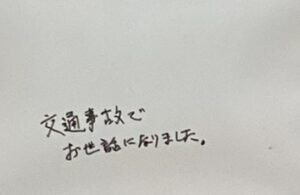 交通事故で
お世話になりました。